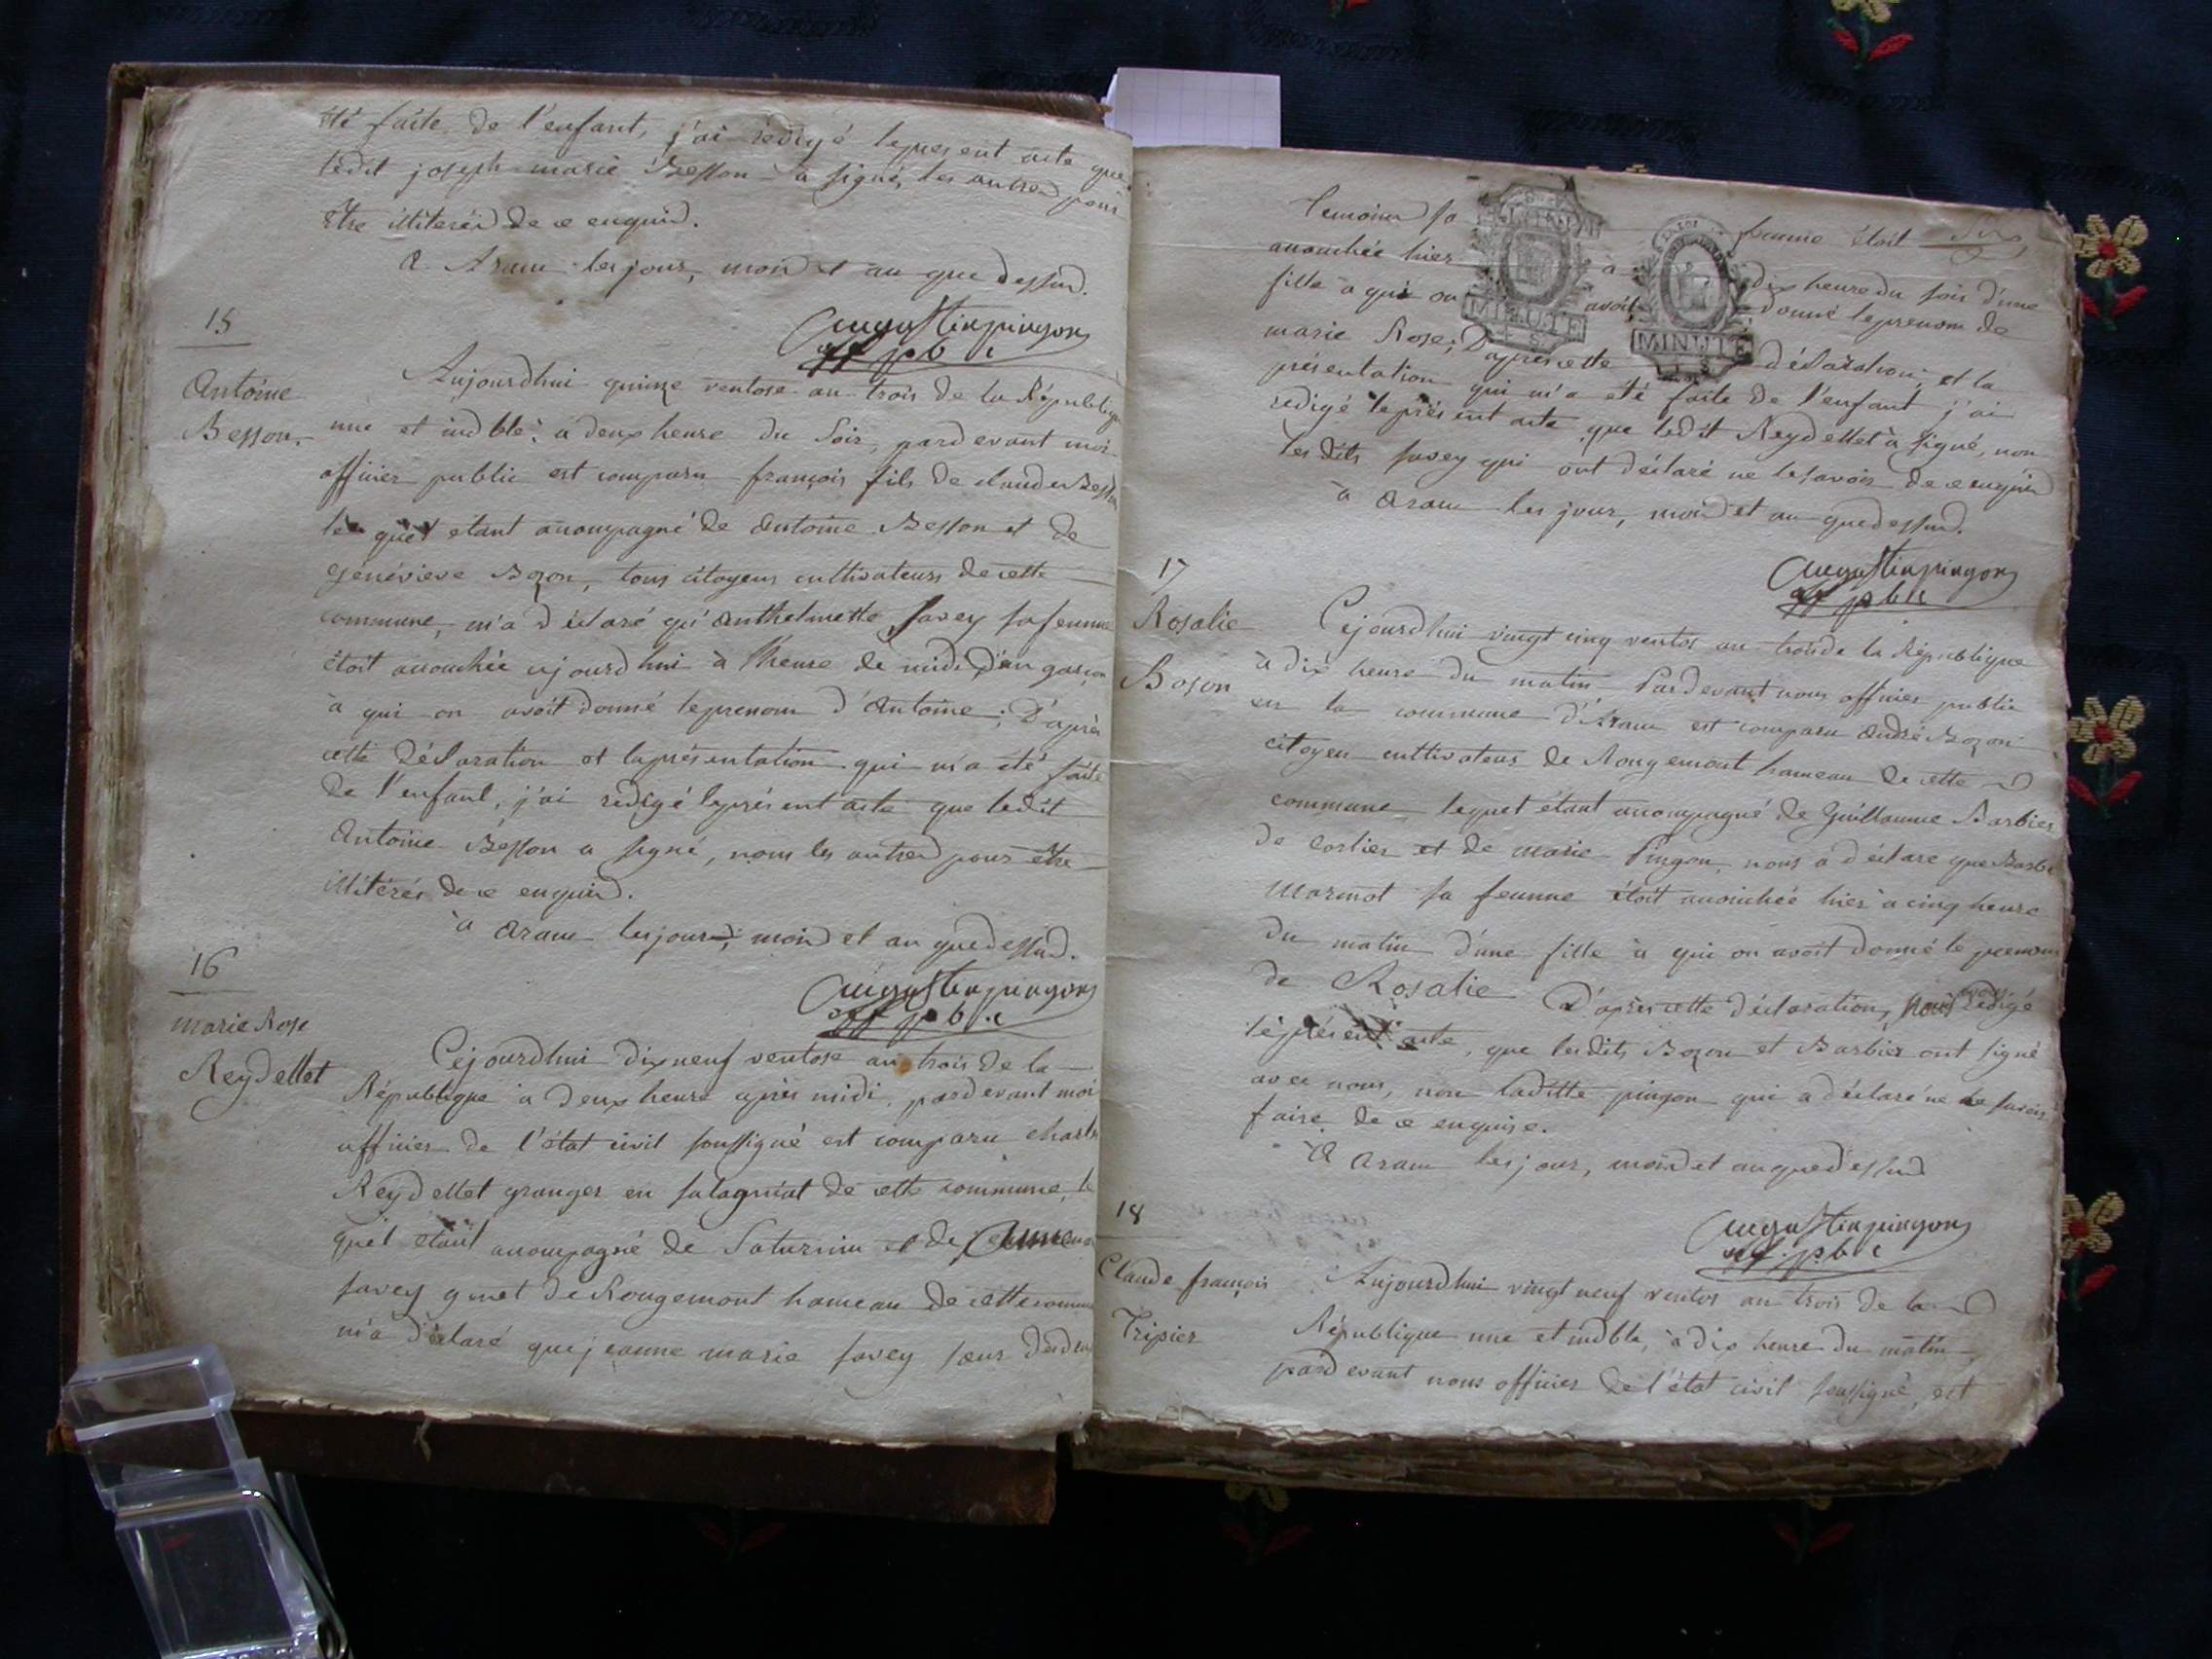 été faite de l'enfant, j'ai redigé lepresent acte que
ledit joseph marie Besson a signé, les autres pour
être illiterés de ce enquis.
à Aranc les jour, mois et an que dessus.
augustin pingon
off pblc
15
Antoine
Besson.
Aujourdhui quinze ventose an trois de la République
une et indble, a deux heure du soir, pardevant moi
officier public est comparu françois fils de claude Besson
le quel etant accompagné de antoine Besson et de
généviève Bozon, tous citoyens cultivateurs de cette
commune, m'a déclaré qu'anthelmette savey sa femme
étoit accouchée cejourdhui à l'heure de midi d'un garçon
à qui on avoit donné leprenom d'Antoine; D'après
cette déclaration et laprésentation qui m'a été faite
de l'enfant, j'ai redigé leprésent acte que ledit
antoine Besson a signé, nom les autres pour être
illitérés de ce enquis.
à aranc les jour, mois et an que dessus.
augustin pingon
off pblc
16
marie Rose
Reydellet
Cejourdhui dix neuf ventose an trois de la
République a deux heure après midi, pardevant moi
officier de l'état civil soussigné est comparu charles
Reydellet granger en salagniat de cette commune, le
quel etant accompagné de Saturnin et de
savey de Rougemont hameau de cette commune
m'a déclaré que jeanne marie savey sœur desdeux
temoins sa femme étoit
accouchée hier à dix heure du soir d'une
fille à qui on avoit donné leprenom de
marie Rose; D'après cette déclaration, et la
présentation qui m'a eté faite de l'enfant j'ai
redigé leprésent acte que ledit Reydellet à signé, non
les dits savey qui ont déclaré ne le savoir de ce enquis
à aranc les jour, mois et an que dessus.
MINUTE
MINUTE
augustin pingon
off pblc
17
Rosalie
Bozon
Cejourdhui vingt cinq ventos an trois de la République
à dix heure du matin, Pardevant nous officier public
en la commune d'Aranc est comparu andré Bozon
citoyen cultivateur de Rougemont hameau de cette
commune, lequel étant accompagné de Guillaume Barbier
de corlier et de marie Pingon, nous a déclare que Barbe
marmot sa femme étoit accouchée hier à cinq heure
du matin d'une fille à qui on avoit donné le prenom
de Rosalie D'après cette déclaration, nous avons redigé
leprésent acte, que lesdits Bozon et Barbier ont signé
avec nous, non laditte pingon qui a déclaré ne le savoir
faire de ce enquise.
à aranc les jour, mois et an que dessus
augustin pingon
off. pblc
18
Claude françois
Tripier
Aujourdhui vingt neuf ventos an trois de la
République une et indble, à dix heure du matin
pardevant nous officier de l'état civil soussigné, est